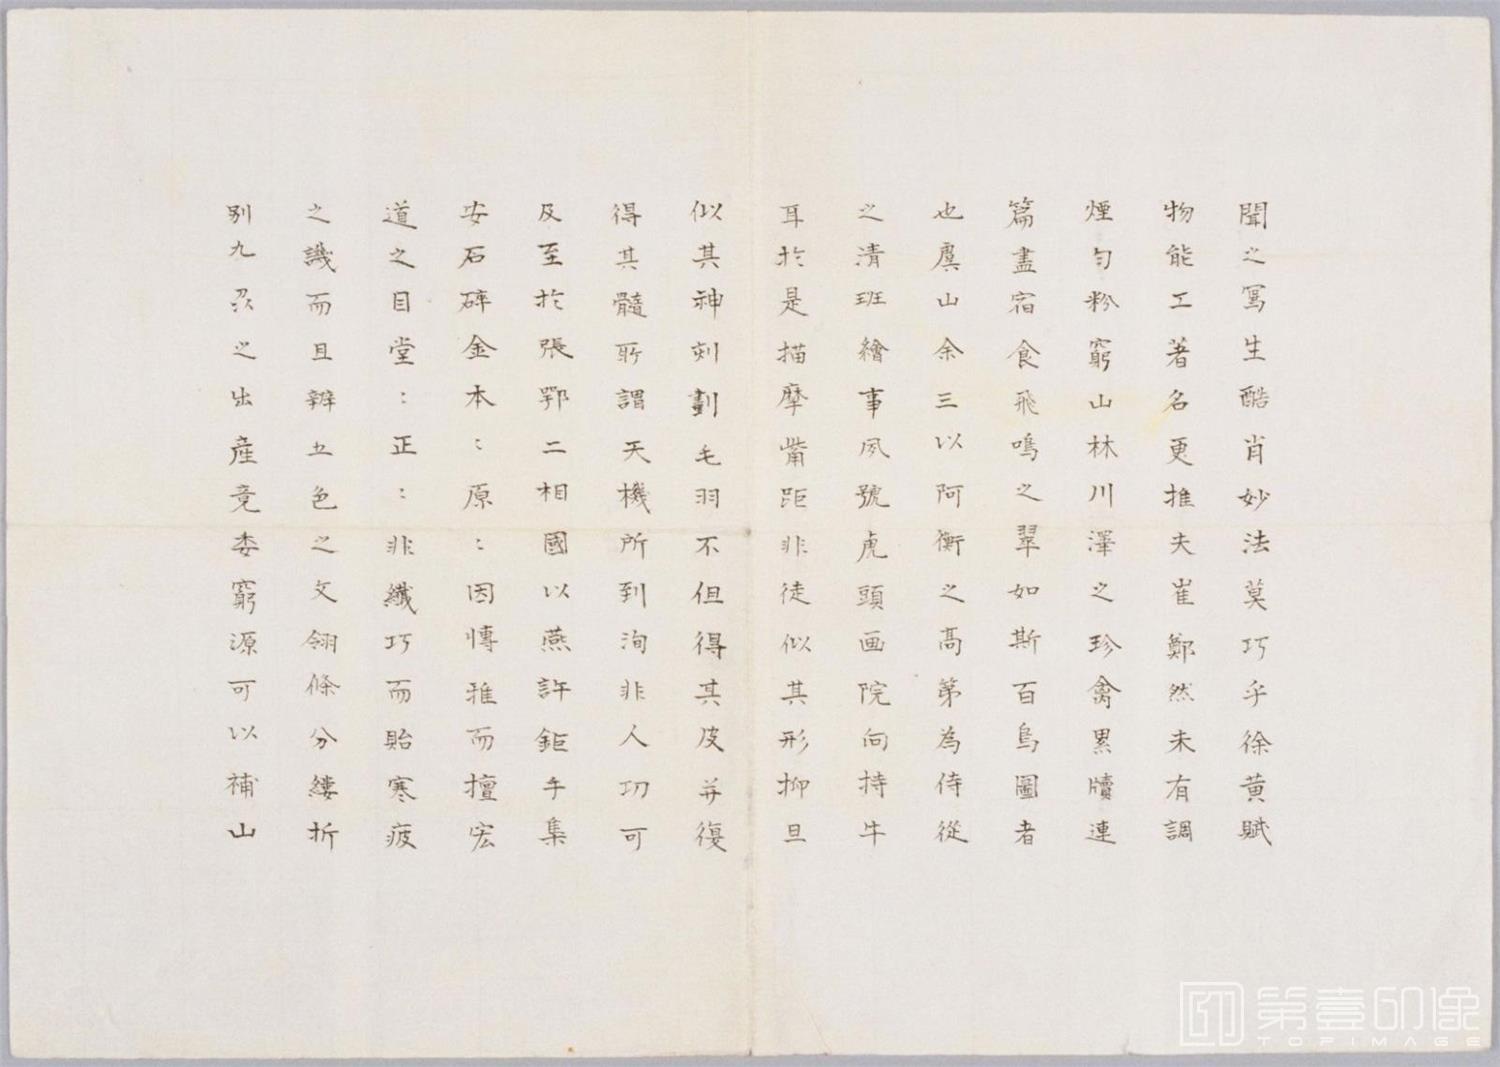 聞之寫生酷肖妙法莫巧乎徐黄賦
物能工著名更推夫崔鄭然未有調
煙勻粉窮山林川澤之珍禽累牘連
篇盡宿食飛鳴之翠如斯百鳥圖者
也虞山余三以阿衡之高第為侍從
之清班繪事夙號虎頭画院向持牛
耳扵是描摩觜距非徒似其形抑且
似其神刻劃毛羽不但得其皮并復
得其髓所謂天機所到洵非人功可
及至扵張鄂二相國以燕許鉅手集
安石碎金本:原:因慱雅而擅宏
道之目堂:正:非纖巧而貽寒疲
之譏而且辨五色之文翎條分縷折
别九之出產竟委窮源可以補山
第壹印像
TOPIMAGE